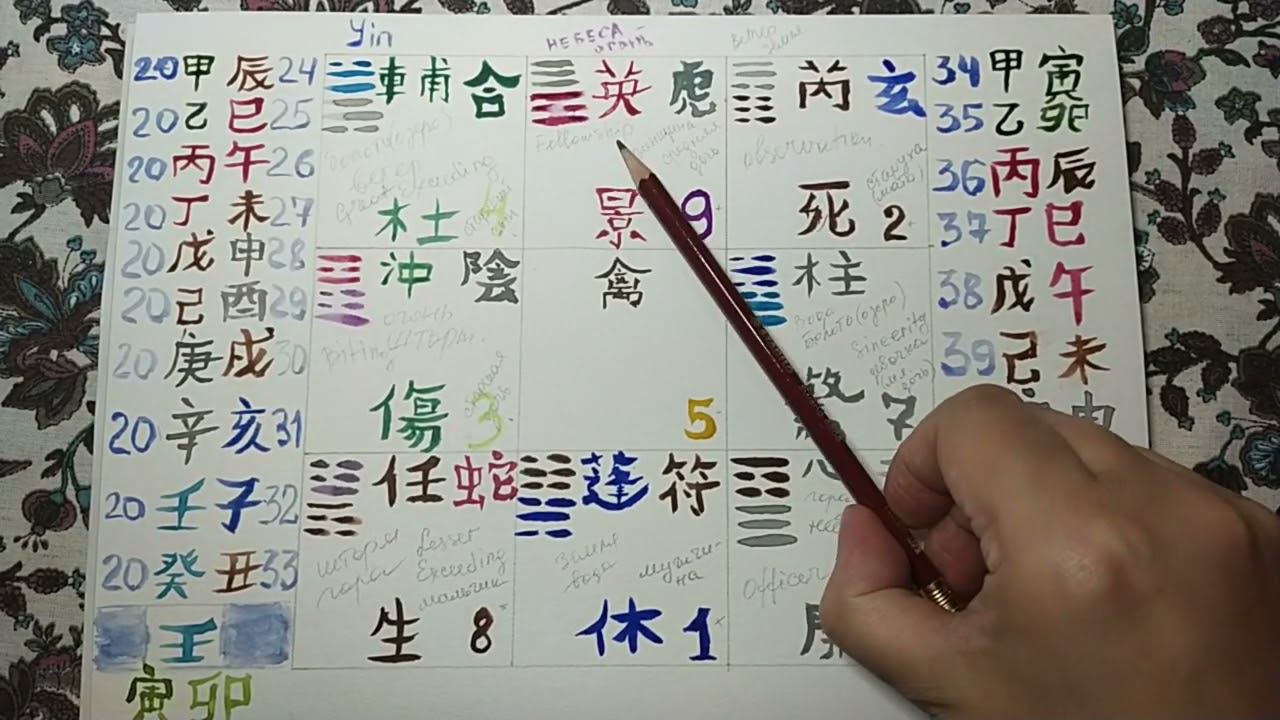 Yin
НЕБЕСА
огонь
Ветер
земля
20甲 辰24
20乙 巳25
20丙 午26
20丁 未27
20戊 申28
20己 酉29
20庚 戌30
20辛 亥31
20壬 子32
20癸 丑33
壬
寅 卯
車甫 合
ветер
Great Exceeding
木土 4
英 虎
Fellowship
женщина
средняя
дочь
景 9
芮 玄
observation
старуха
(мать)
死 2
冲 陰
огонь
Biting шторм
傷 3
禽
5
柱
вода
болото(озеро)
Sincerity
девочка
дочь
7
任 蛇
шторм
гора
Lesser
Exceeding
мальчик
生 8
蓬 符
земля
вода
мужчи-
на
休 1
гора
Officer
34甲 寅
35乙 卯
36丙 辰
37丁 巳
38戊 午
39己 未
申